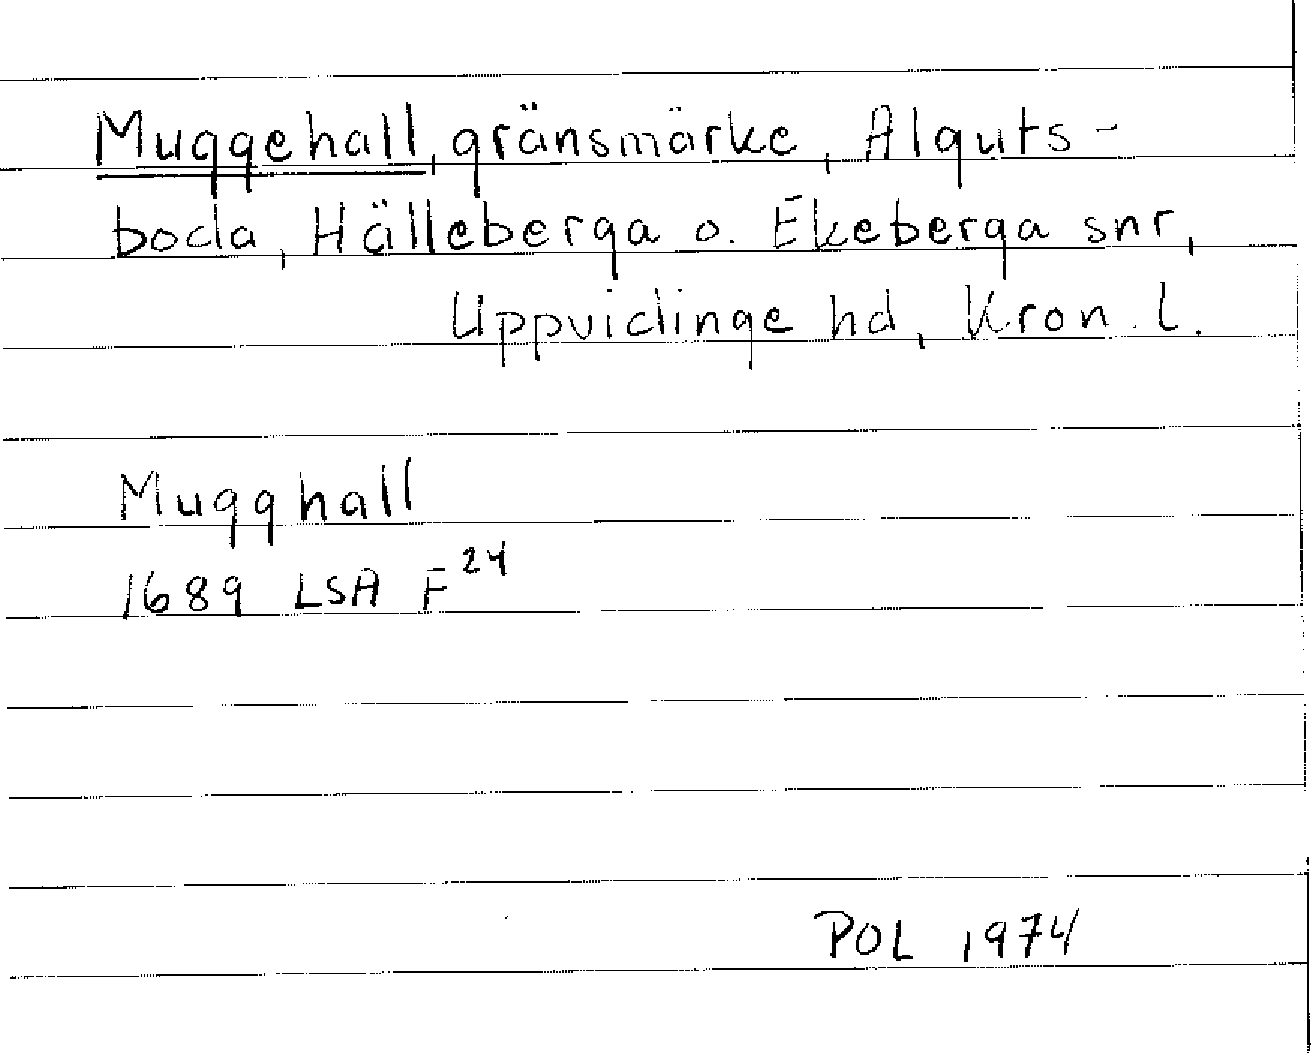 Muggehall, gränsmärke, Alguts-
boda, Hälleberga o. Ekeberga snr,
Uppvidinge hd, Kron. l.
Mugghall
1689 LSA F 24
POL 1974